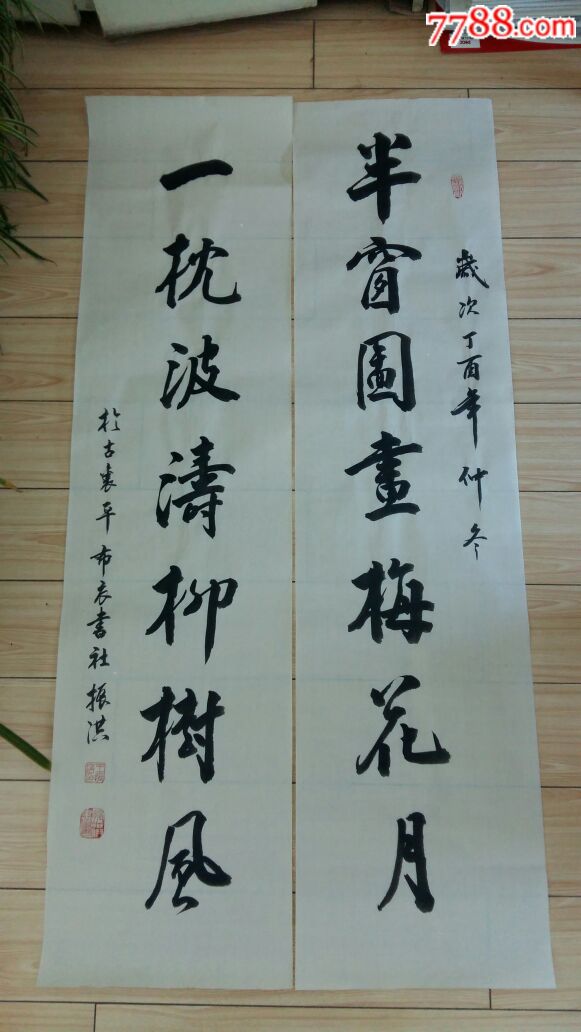 7788.com
歲次丁酉年仲冬
半窗圖畫梅花月
一枕波濤柳樹風
於古襄平布衣書社振洪